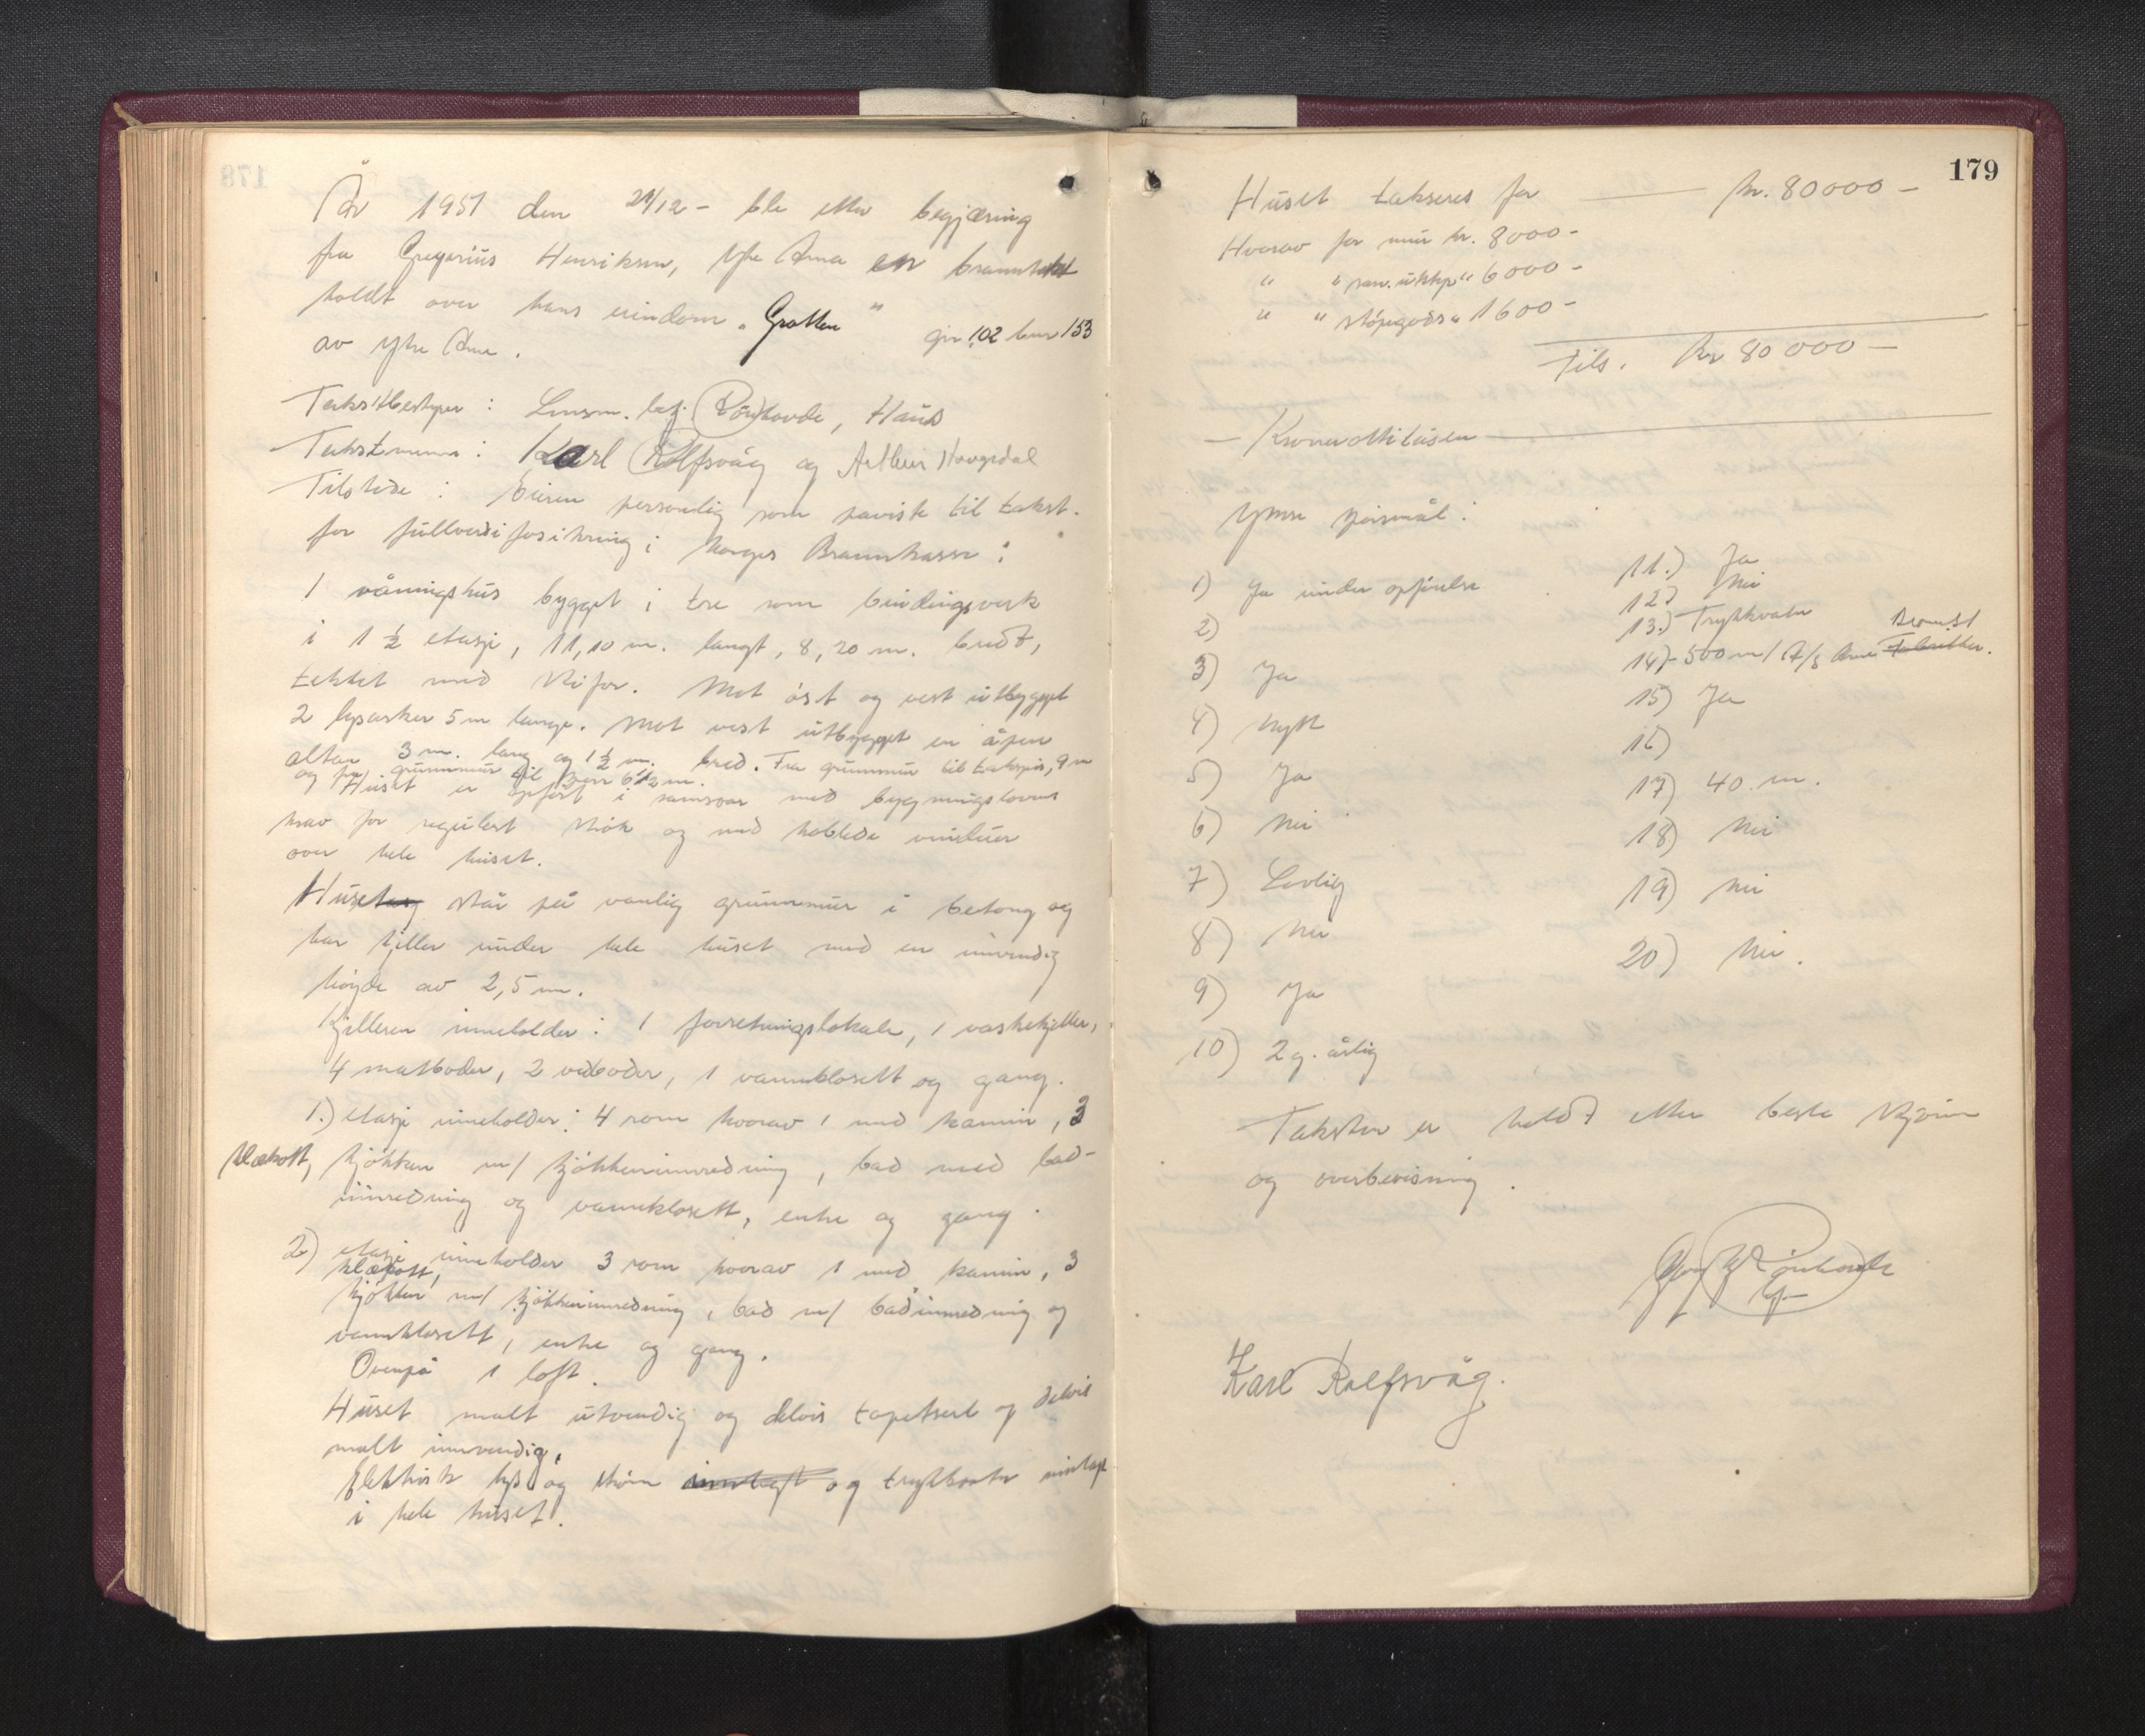 År 1951 den 21/12 – ble etter begjæring
fra Gregorius Henriksen, Ytre Arna en branntakst
holdt over hans eiendom „Grotten" gnr 102 bnr 153
av ytre Arna.
Takstbestyrer: Lensm. betj. Rönhovde, Haus
Takstmenn: Karl Rolfsvåg og Arthur Haugsdal
Tilstede: Eieren personlig som paviste til takst.
for fullverdiforsikring i Norges Brannkasse:
1 våningshus bygget i tre som bindingsverk
i 1 ½ etasje, 11,10 m. langt, 8,20 m. bredt,
tekket med skifer. Mot öst og vest utbygget
2 lysarker 5 m lange. Mot vest utbygget en åpen
altan 3 m. lang og 1 ½ m. bred. Fra grunnmur til takspis, 9 m
og fra grunnmur til 6 ½ m.
Huset er opfört i samsvar med bygningslovens
krav for regulert strök og med koblede vinduer
over hele huset.
Huset står på vanlig grunnmur i betong og
har kjeller under hele huset med en innvendig
höyde av 2,5 m.
Kjelleren inneholder: 1 forretningslokale, 1 vaskekjeller,
4 matboder, 2 vedboder, 1 vannklosett og gang.
1.) etasje inneholder: 4 rom hvorav 1 med kamin, 3
klækott, kjökken m/ kjökkeninnredning, bad med bad-
innredning og vannklosett, entre og gang.
2) etasje inneholder 3 rom hvorav 1 med kamin, 3
klækott,
kjökken m/ kjökkeninnredning, bad m/ badinnredning og
vannklosett, entre og gang.
Ovenpå 1 loft.
Huset malt utvendig og delvis tapetsert og delvis
malt innvendig.
Elektrisk lys og ström innlagt og trykkvatn innlagt
i hele huset.
179
Huset takseres for kr. 80000 –
Hvorav for mur kr. 8000 –
" " san. utstyr " 6000 –
" " stöpegods " 1600 –
Tils. kr 80 000 –
– Kroneråttitusen –
Ymse spörsmål:
1) Ja under opförelse
2)
3) Ja
4) Nytt
5) Ja
6) Nei
7) Lovlig
8) Nei
9) Ja
10) 2 g. årlig
11.) Ja
12.) Nei
13.) Trykkvatn
14) 500 m/ A/S Arne Fabrikker.
15) Ja
16)
17) 40 m.
18) Nei
19) Nei
20) Nei.
Taksten er holdt etter beste skjönn
og overbevisning.
Rönhovde
Karl Rolfsvåg.